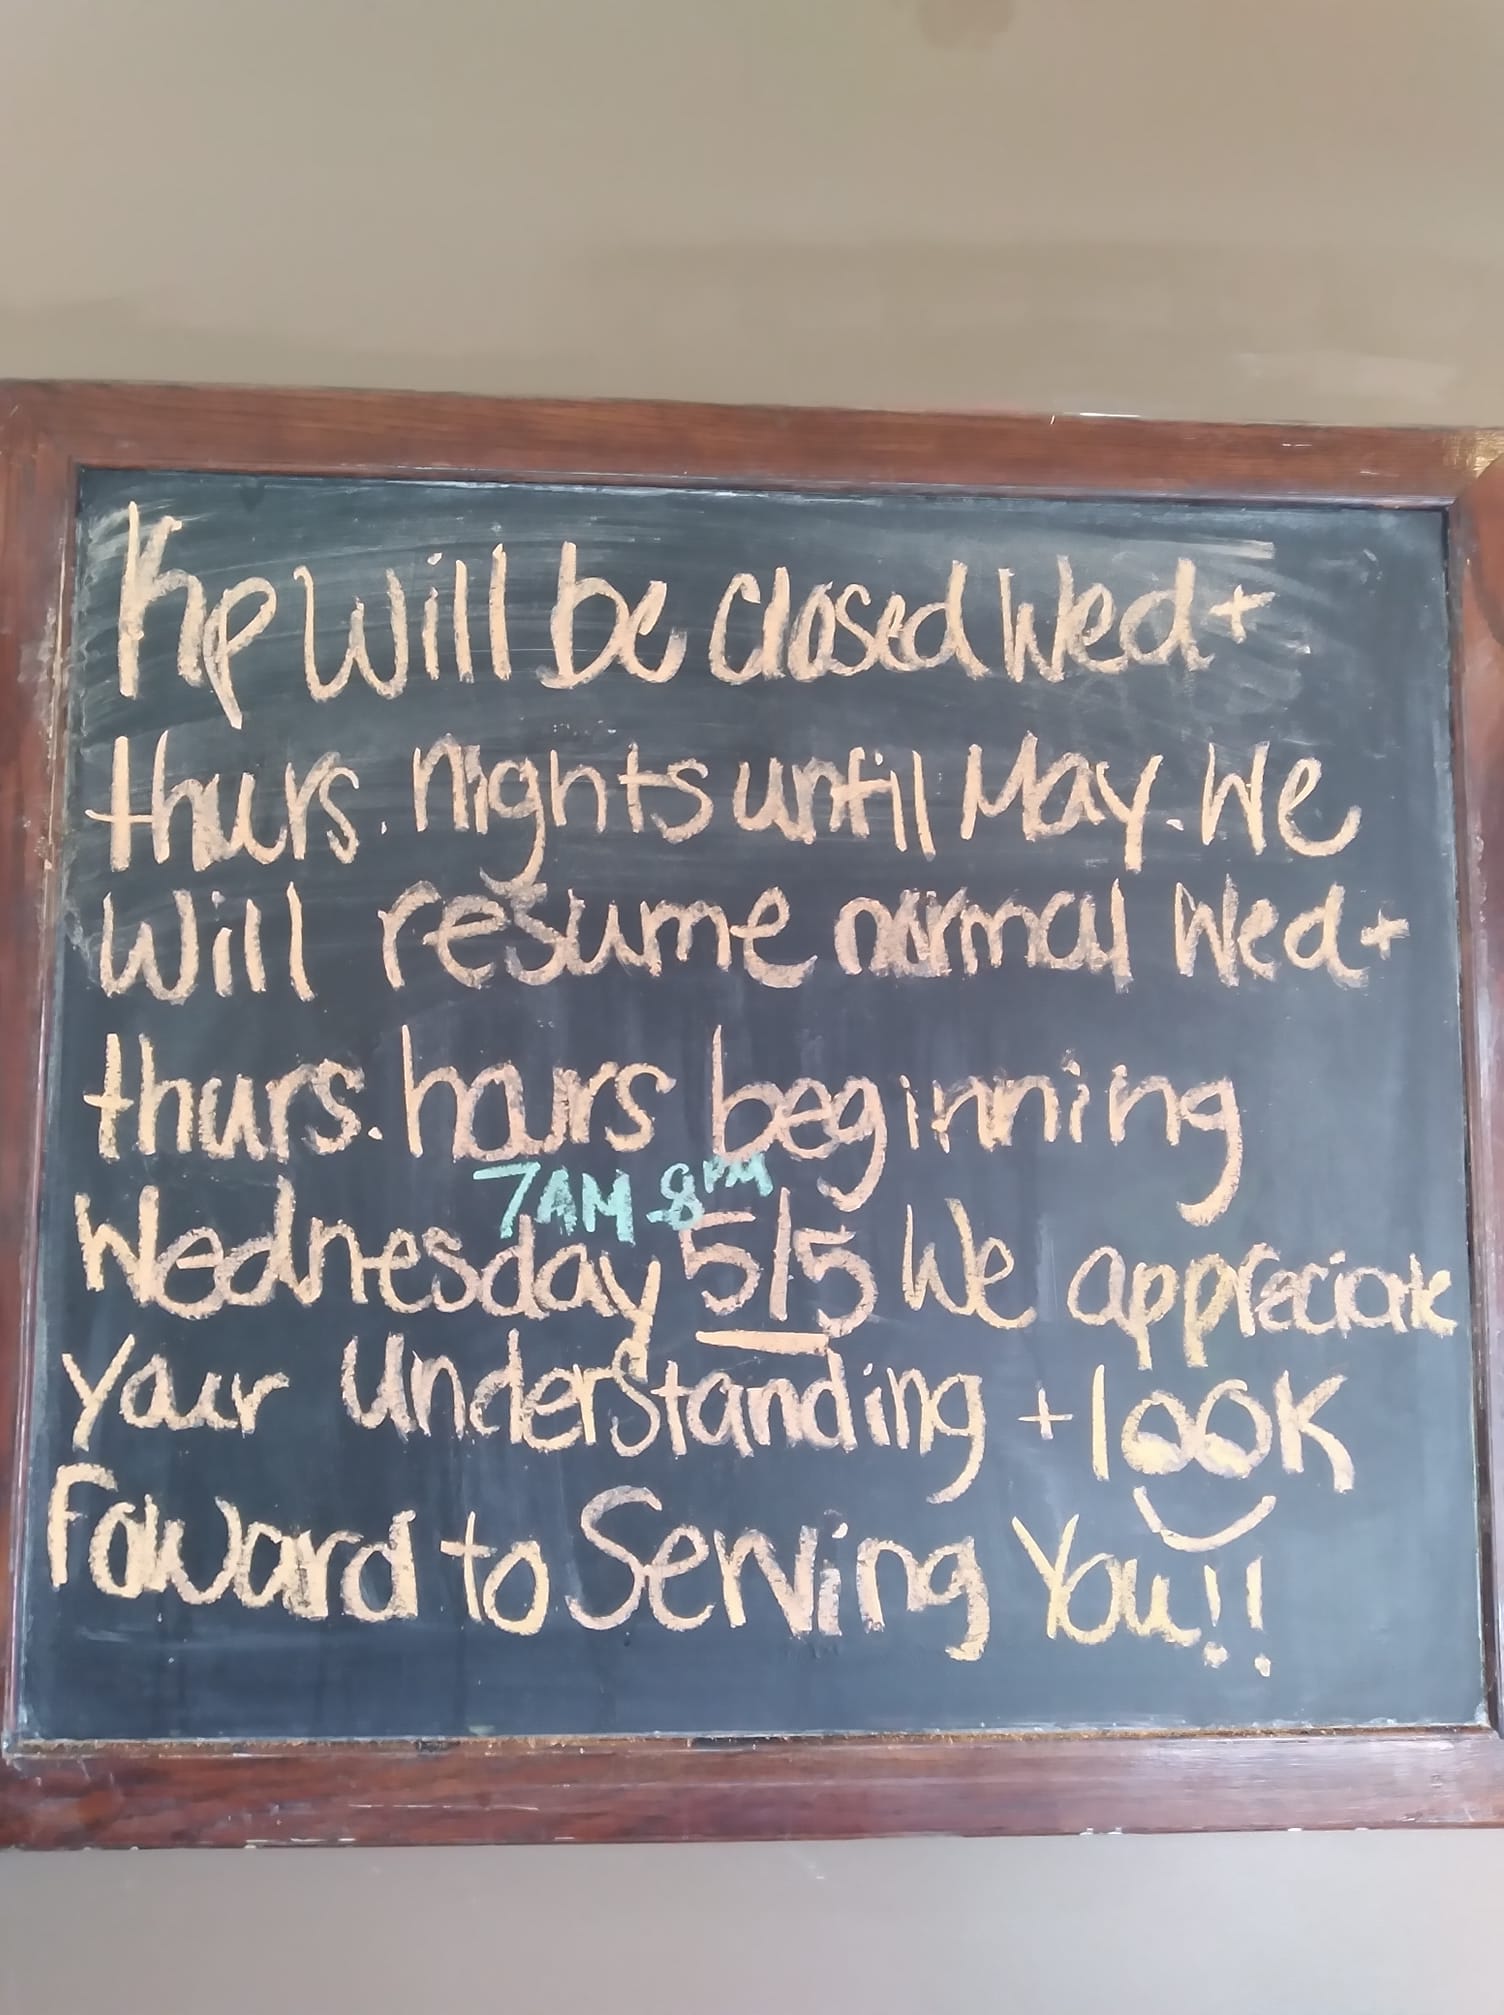 Kp Will be closed Wed +
thurs. nights until May. We
Will resume normal Wed +
thurs. hours beginning
7AM-8PM
Wednesday 5/5 We appreciate
your understanding + look
Foward to Serving You!!